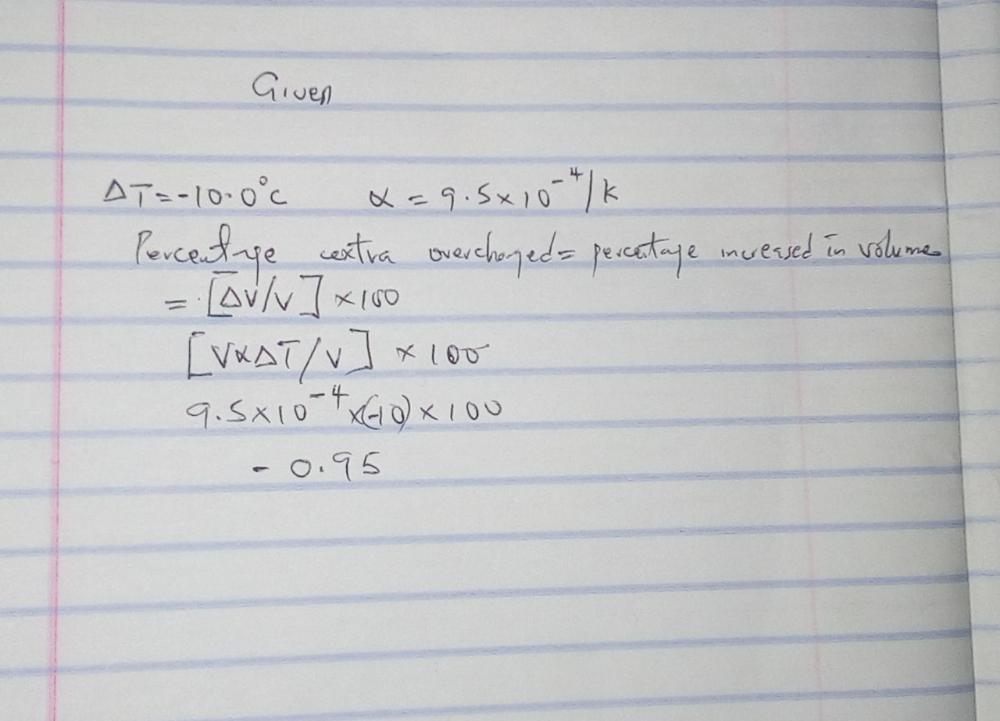 Given
ΔT=-10.0°C α = 9.5×10⁻⁴/k
Percentage extra overcharged= percentage increased in volume
= [ΔV/V] ×100
[VαΔT/V] × 100
9.5×10⁻⁴×(-10)×100
- 0.95